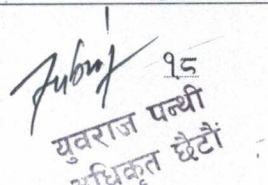 १८
युवराज पन्थी
अधिकृत छैटौं